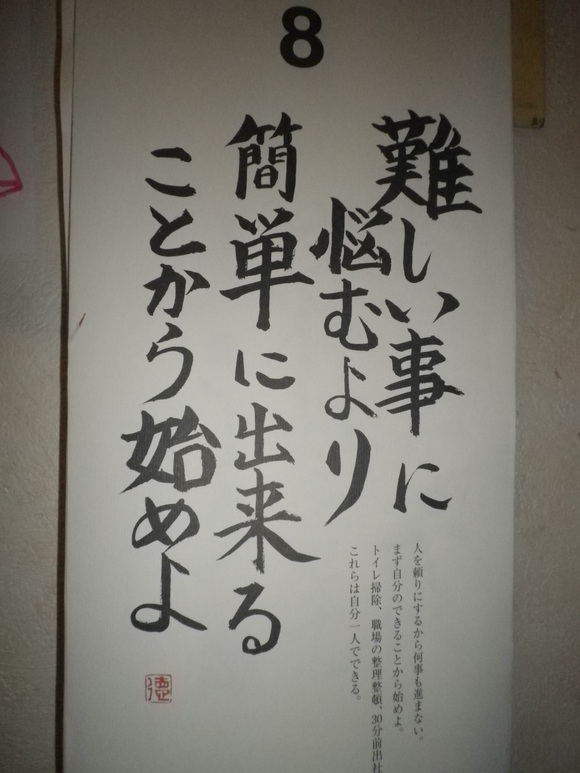 8
難しい事に
悩むより
簡単に出来る
ことから始めよ
人を頼りにするから何事も進まない。
まず自分のできることから始めよ。
トイレ掃除、職場の整理整頓、30分前出社
これらは自分一人でできる。
徳